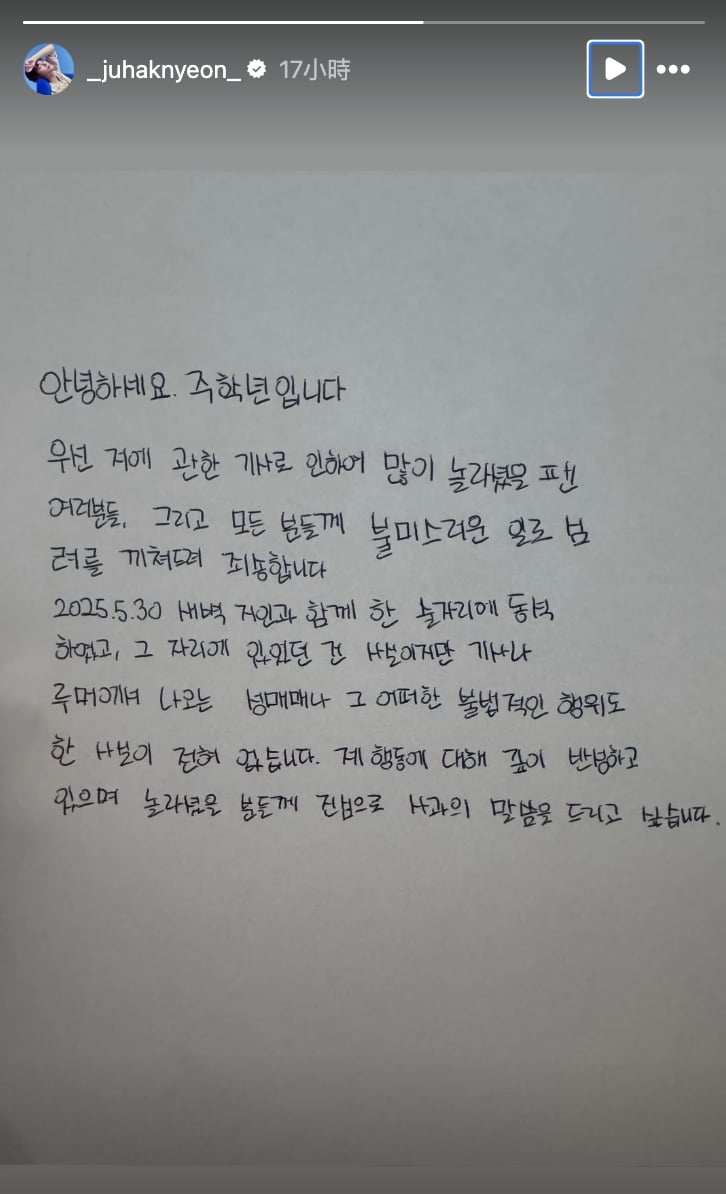 _juhaknyeon_ 17小時
안녕하세요. 주학년입니다
우선 저에 관한 기사로 인하여 많이 놀라셨을 팬
여러분들, 그리고 모든 분들께 불미스러운 일로 심
려를 끼쳐드려 죄송합니다
2025.5.30 새벽 지인과 함께 한 술자리에 동석
하였고, 그 자리에 있었던 건 사실이지만 기사나
루머에서 나오는 성매매나 그 어떠한 불법적인 행위도
한 사실이 전혀 없습니다. 제 행동에 대해 깊이 반성하고
있으며 놀라셨을 분들께 진심으로 사과의 말씀을 드리고 싶습니다.